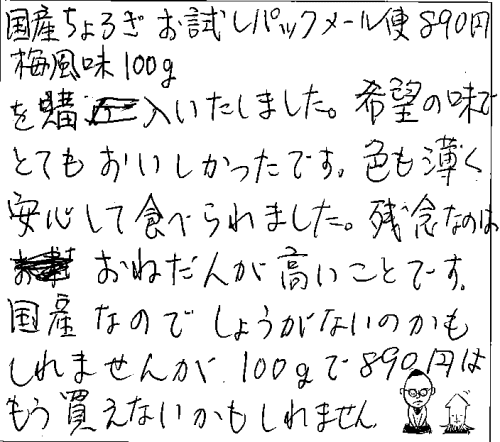 国産ちょろぎ お試しパックメール便890円
梅風味100g
を購入いたしました。希望の味で
とてもおいしかったです。色も薄く
安心して食べられました。残念なのは
おねだんが高いことです。
国産なのでしょうがないのかも
しれませんが、100gで890円は
もう買えないかもしれません